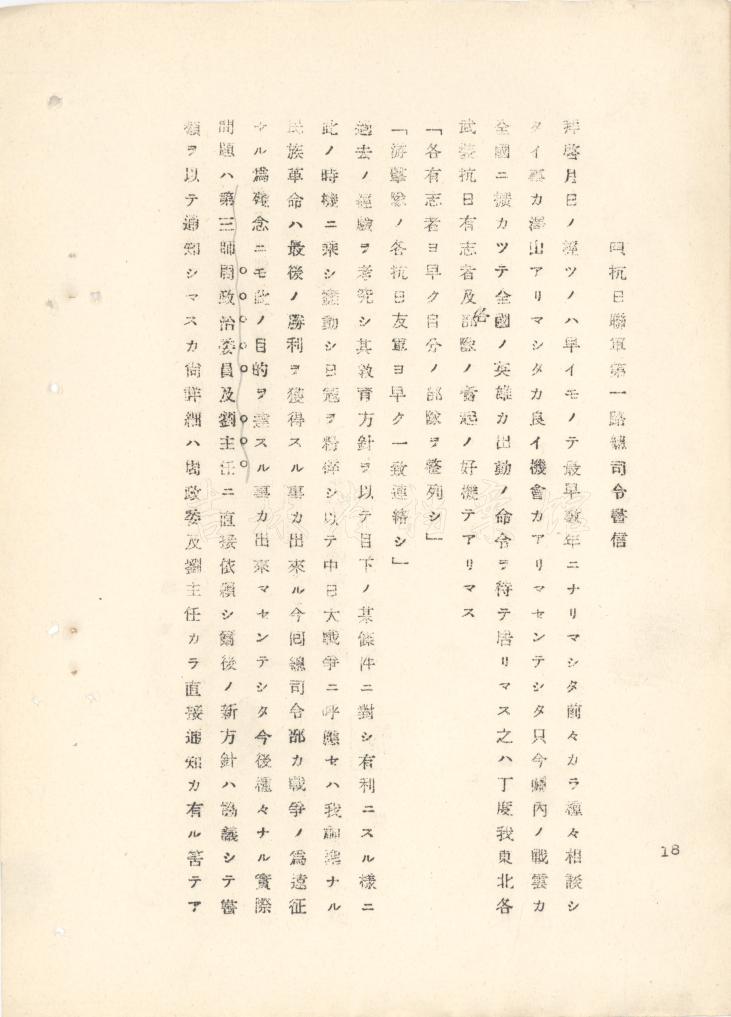 四抗日聯軍第一路總司令書信
拜啓月日ノ經ツノハ早イモノテ最早數年ニナリマシタ前々カラ種々相談シ
タイ事カ澤山アリマシタカ良イ機會カアリマセンテシタ只今關內ノ戰雲カ
全國ニ擴カツテ全國ノ英雄カ出動ノ命令ヲ待テ居リマス之ハ丁度我東北各
武裝抗日有志者及各部隊ノ奮起ノ好機テアリマス
「各有志者ヨ早ク自分ノ部隊ヲ整列シ」
「游擊隊ノ各抗日友軍ヨ早ク一致連絡シ」
過去ノ經驗ヲ考究シ其敎育方針ヲ以テ目下ノ某條件ニ對シ有利ニスル樣ニ
此ノ時機ニ乘シ動シ日寇ヲ粉碎シ以テ中日大戰爭ニ呼應セハ我ナル
民族革命ハ最後ノ勝利ヲ獲得スル事カ出來ル今回總司令部カ戰爭ノ爲遠征
セル爲殘念ニモ此ノ目的ヲ達スル事カ出來マセンテシタ今後種々ナル實際
問題ハ第三師周政治委員及劉主任ニ直接依賴シ爾後ノ新方針ハ協議シテ書
類ヲ以テ通知シマスカ尙詳細ハ周政委及劉主任カラ直接通知カ有ル筈テア
18
吉林省檔案館